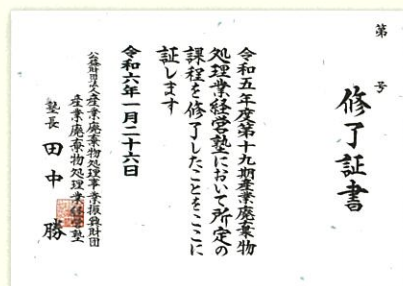 第　号
修了証書
令和五年度第十九期産業廃棄物
処理業経営塾において所定の
課程を修了したことをここに
証します
令和六年一月二十六日
公益財団法人産業廃棄物処理事業振興財団
産業廃棄物処理業経営塾
塾長 田中 勝